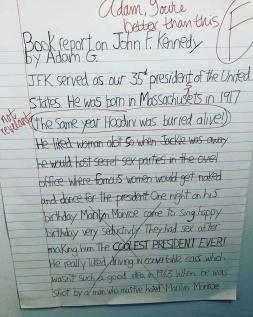 Adam, you're
better than this!
F
Book report on John F. Kennedy
by Adam G.
JFK served as our 35th president of the United
States. He was born in Massachusets in 1917
not relevant
(the same year Hoodini was buried alive!)
He liked woman alot so when Jackie was away
he would host secret sex parties in the ovel
office where famous women would get naked
and dance for the president. One night on his
birthday Marilyn Monroe came to sing happy
birthday very seductivly. They had sex after
making him the COOLEST PRESIDENT EVER!
He really liked driving in convertable cars which
wasn't such a good idea in 1963 when he was
shot by a man who must've hated Marilyn Monroe